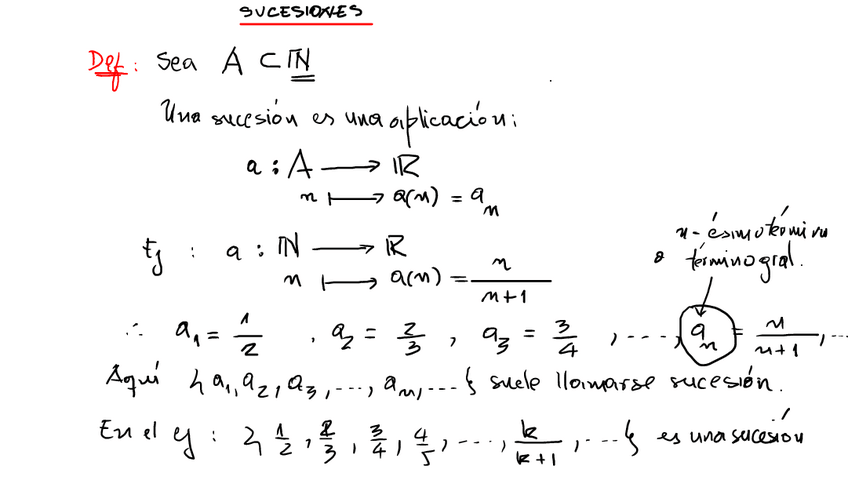 SUCESIONES
Def: Sea A ⊂ ℕ
Una sucesión es una aplicación:
a : A ⟶ ℝ
n ⟼ a(n) = a_n
Ej : a : ℕ ⟶ ℝ
n ⟼ a(n) = n/(n+1)
n-ésimo término
o término gral.
∴ a_1 = 1/2 , a_2 = 2/3 , a_3 = 3/4 , ..., a_n = n/(n+1), ...
Aquí {a_1, a_2, a_3, ..., a_n, ...} suele llamarse sucesión.
En el ej : {1/2, 2/3, 3/4, 4/5, ..., k/(k+1), ...} es una sucesión